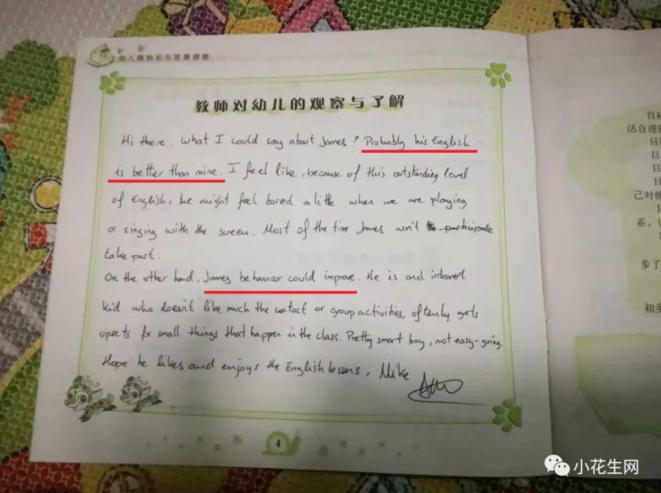 幼儿园快乐与发展课程
教师对幼儿的观察与了解
Hi there. What I could say about James? Probably his English
is better than mine. I feel like, because of this outstanding level
of English, he might feel bored a little when we are playing
or singing with the sween. Most of the time James won't participate
take part.
On the other hand, James behavior could improve. He is and introvert
kid who doesn't like much the contact or group activities, oftenly gets
upsets for small things that happen in the class. Pretty smart boy, not easy-going.
Hope he likes and enjoys the English lessons, Mike
4
目标
活自理能
目标
目
目
己对他
目
系，
步了
初步
小花生网